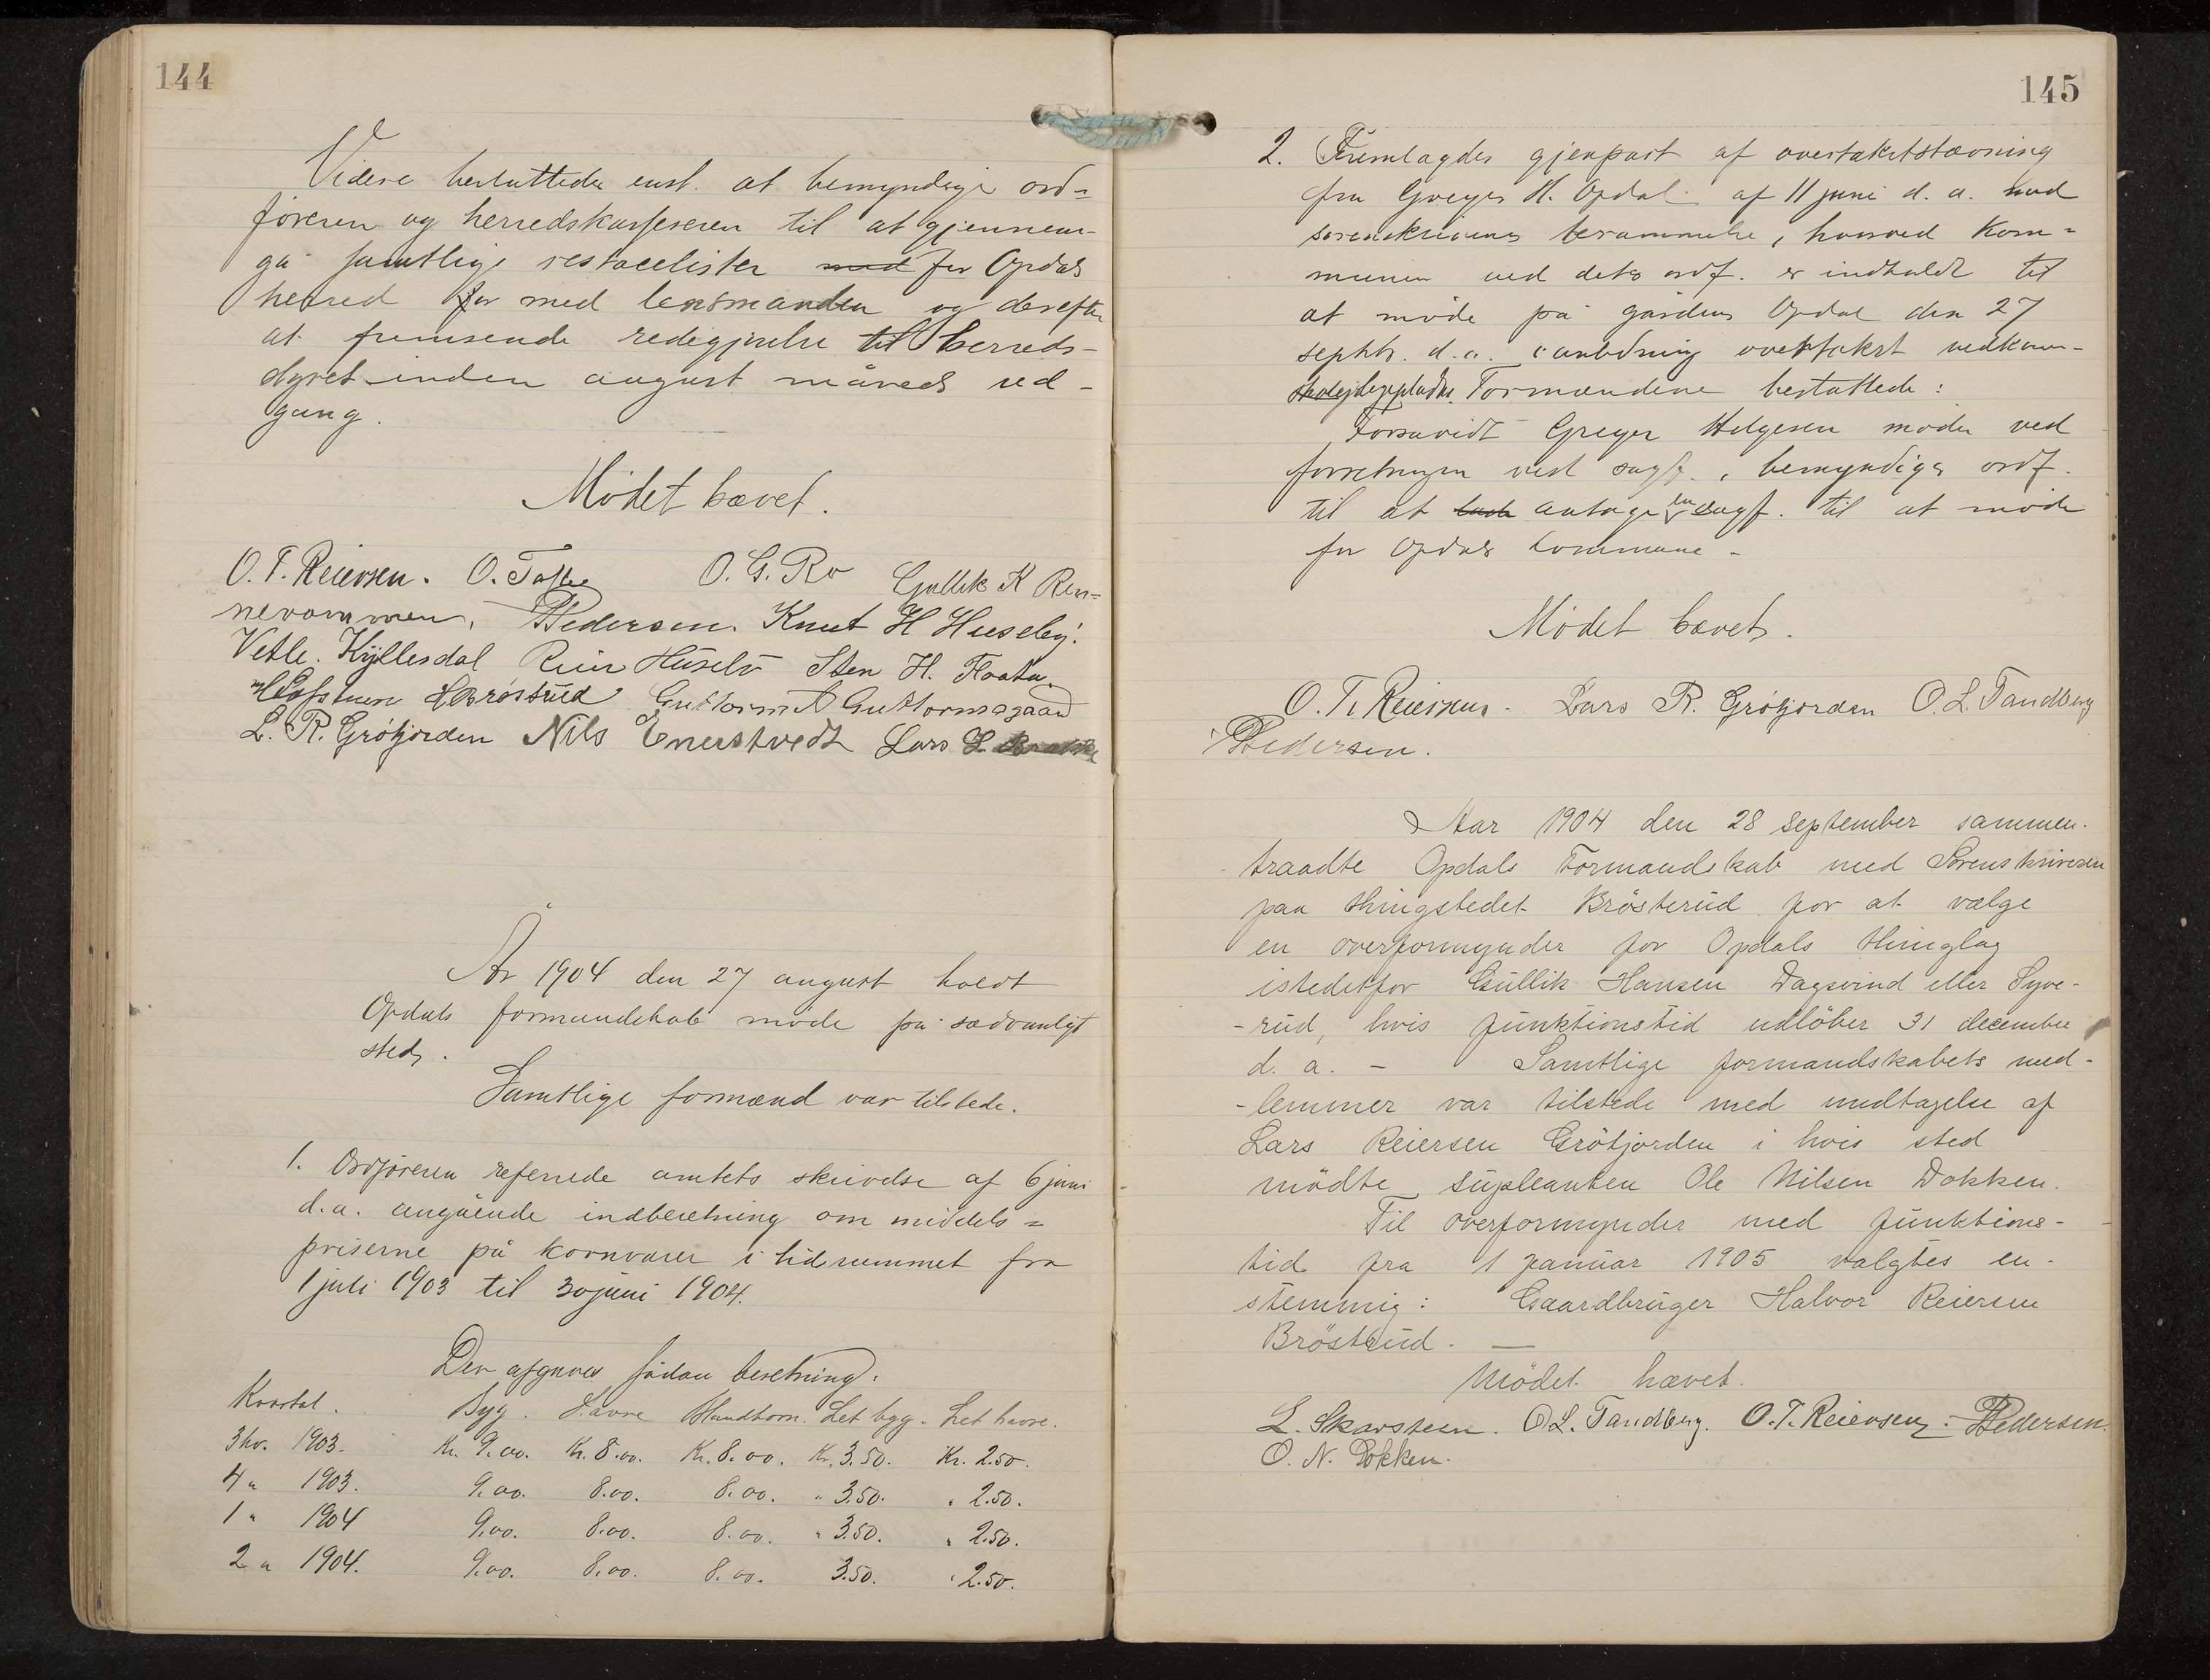 144
Videre besluttedes enst. at bemyndige ord=
føreren og herredskassereren til at gjennem-
gå samtlige restancelister med for Opdals
herred for med lensmanden og derefter
at fremsende redegjørelse til herreds-
styret inden august måneds ud-
gang.
Mødet hævet.
O. T. Reiersen. O. Tasse O. G. Ro Gullik K Ren=
nevammen, P Pedersen. Knut H Huseby.
Vetle. Kyllesdal Reier Huselø Sten H. Floata.
H Brøsterud Guttorm A Guttormsgaard
L. R. Grøtjorden Nils Enerstvedt Lars L.
År 1904 den 27 august holdt
Opdals formandskab møde på sædvanligt
sted.
Samtlige formænd var tilstede.
1. Ordføreren refererede amtets skrivelse af 6 juni
d.a. angående indberetning om middels=
priserne på kornvarer i tidsrummet fra
1 juli 1903 til 30 juni 1904.
Der afgaves sådan beretning:
Kvartal. Byg. Havre Blandkorn. Let byg. Let havre.
3 kv. 1903. Kr. 9.00. Kr. 8.00. Kr. 8.00. Kr. 3.50. Kr. 2.50.
4 " 1903. 9.00. 8.00. 8.00. " 3.50. " 2.50.
1 " 1904 9.00. 8.00. 8.00. " 3.50. " 2.50.
2 " 1904. 9.00. 8.00. 8.00. 3.50. " 2.50.
145
2. Fremlagdes gjenpart af overtakststævning
fra Greger H. Opdal af 11 juni d. a. med
sorenskriverens berammelse, hvorved Kom=
munen ved dets ordf. er indkaldt til
at møde på gården Opdal den 27
septbr. d.a. i anledning overtakst vedkom-
Formændene besluttede:
Forsåvidt Greger Helgesen møder ved
forretningen med sagf., bemyndiges ordf.
til at antage en sagf. til at møde
for Opdals kommune -
Mødet hævet.
O. T. Reiersen. Lars R. Grøtjorden O. L. Tandberg
P Pedersen.
Aar 1904 den 28 september sammen-
traadte Opdals Formandskab med Sorenskriveren
paa thingstedet Brösterud for at vælge
en overformynder for Opdals thinglag
istedetfor Gullik Hansen Dagsvind eller Syve-
-rud, hvis funktionstid udlöber 31 december
d. a. - Samtlige formandskabets med-
-lemmer var tilstede med undtagelse af
Lars Reiersen Grötjorden i hvis sted
mödte supleanten Ole Nilsen Dokken.
Til overformynder med funktions-
tid fra 1 januar 1905 valgtes en-
stemmig: Gaardbruger Halvor Reiersen
Brösterud. —
Mödet hævet.
L. Skarsteen. O L. Tandberg. O. T. Reiersen. P Pedersen.
O. N. Dokken.